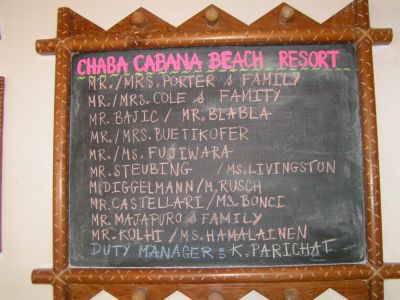 CHABA CABANA BEACH RESORT
MR./MRS. PORTER & FAMILY
MR./MRS. COLE & FAMITY
MR. BAJIC / MR. BLABLA
MR./MRS. BUETIKOFER
MR./MS. FUJIWARA
MR. STEUBING /MS. LIVINGSTON
M. DIGGELMANN/M. RUSCH
MR. CASTELLARI/MS. BONCI
MR. MAJAPURO & FAMILY
MR. KOLHI / MS. HAMALAINEN
DUTY MANAGER : K. PARICHAT